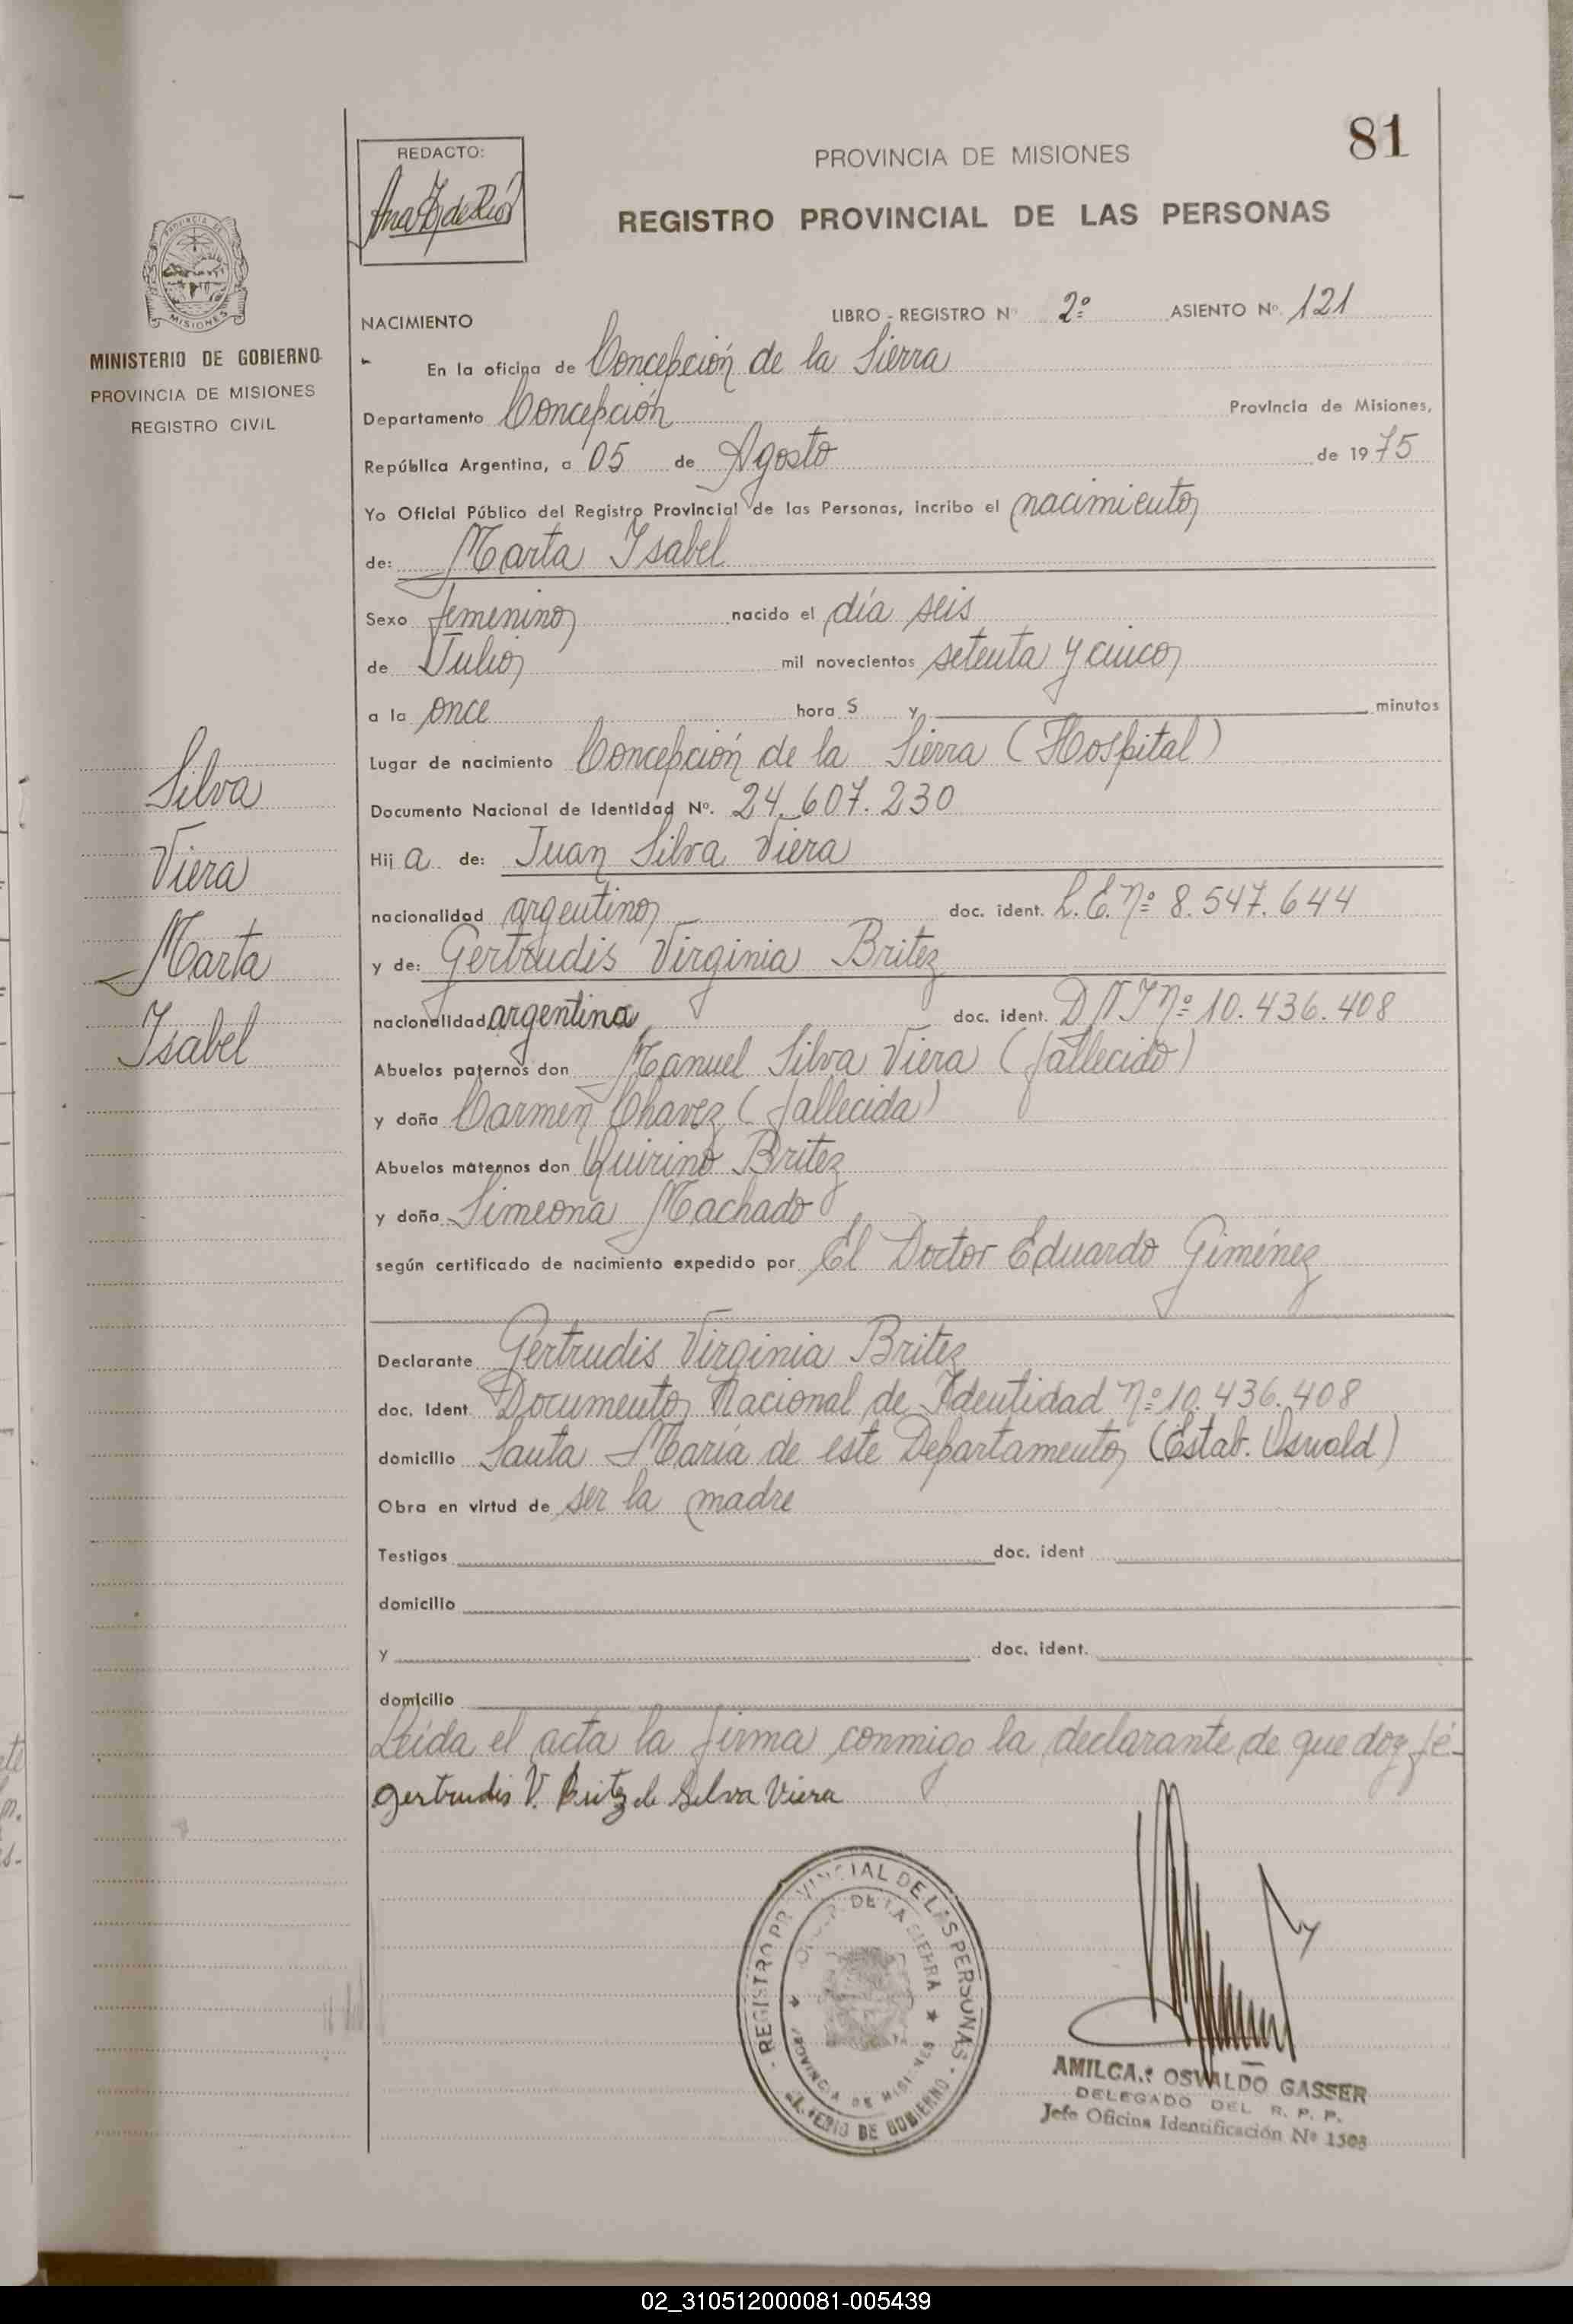 81
REDACTO:
PROVINCIA DE MISIONES
REGISTRO PROVINCIAL DE LAS PERSONAS
MISIONES
MINISTERIO DE GOBIERNO
PROVINCIA DE MISIONES
REGISTRO CIVIL
NACIMIENTO LIBRO - REGISTRO Nº 2º ASIENTO Nº 121
En la oficina de Concepción de la Sierra
Departamento Concepción Provincia de Misiones,
República Argentina, a 05 de Agosto de 1975
Yo Oficial Público del Registro Provincial de las Personas, incribo el nacimiento
de: Marta Isabel
Sexo femenino nacido el día seis
de Julio mil novecientos setenta y cinco
a la once hora s y minutos
Lugar de nacimiento Concepción de la Sierra (Hospital)
Documento Nacional de Identidad Nº. 24.607.230
Hij a de: Juan Silva Viera
nacionalidad argentino doc. ident. L.E. Nº 8.547.644
y de: Gertrudis Virginia Britez
nacionalidad argentina doc. ident. DNI Nº 10.436.408
Abuelos paternos don Manuel Silva Viera (fallecido)
y doña Carmen Chavez (fallecida)
Abuelos maternos don Quirino Britez
y doña Simeona Machado
según certificado de nacimiento expedido por El Doctor Eduardo Giménez
Declarante Gertrudis Virginia Britez
doc. Ident Documento Nacional de Identidad Nº 10.436.408
domicilio Santa María de este Departamento (Estab. Oswald)
Obra en virtud de ser la madre
Testigos doc. ident
domicilio
y doc. ident.
domicilio
Leída el acta la firma conmigo la declarante de que doy fé-
Gertrudis V. Britz de Silva Viera
Silva
Viera
Marta
Isabel
REGISTRO PROVINCIAL DE LAS PERSONAS
DE LA SIERRA
PROVINCIA DE MISIONES
DE GOBIERNO
AMILCAR OSWALDO GASSER
DELEGADO DEL R. P. P.
Jefe Oficina Identificación Nº 1503
02_310512000081-005439